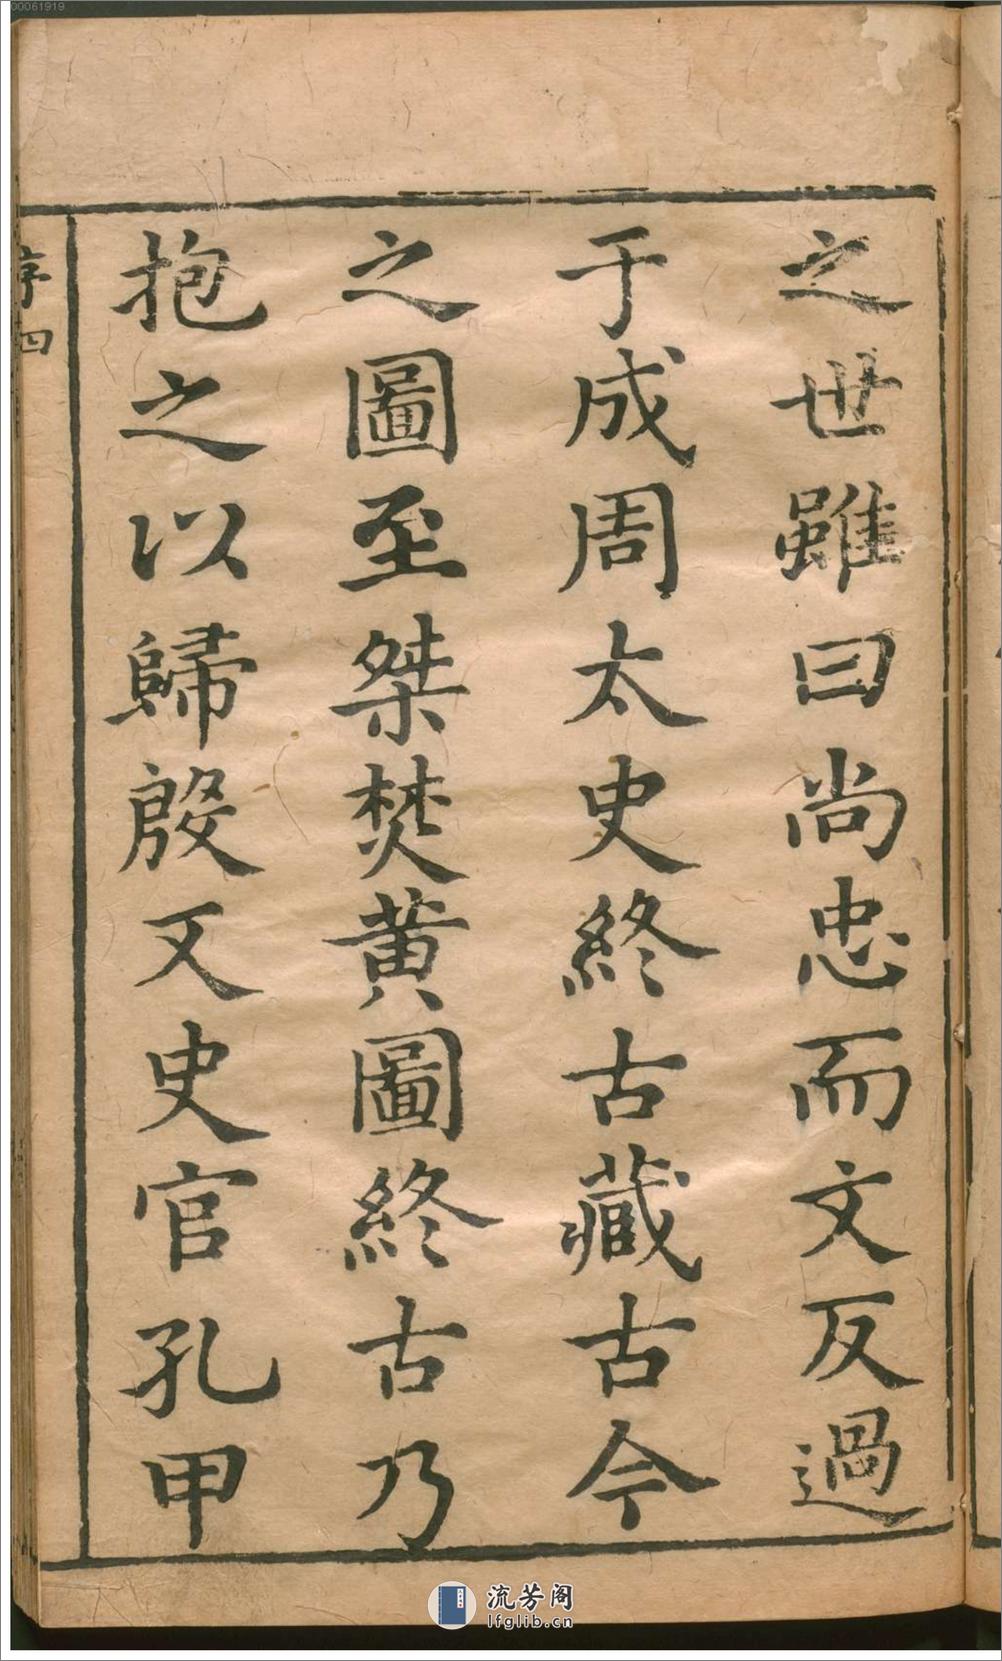 之世雖曰尚忠而文反過
于成周太史終古藏古今
之圖至桀焚黄圖終古乃
抱之以歸殷又史官孔甲
序四
00061919
流芳阁
lfglib.cn